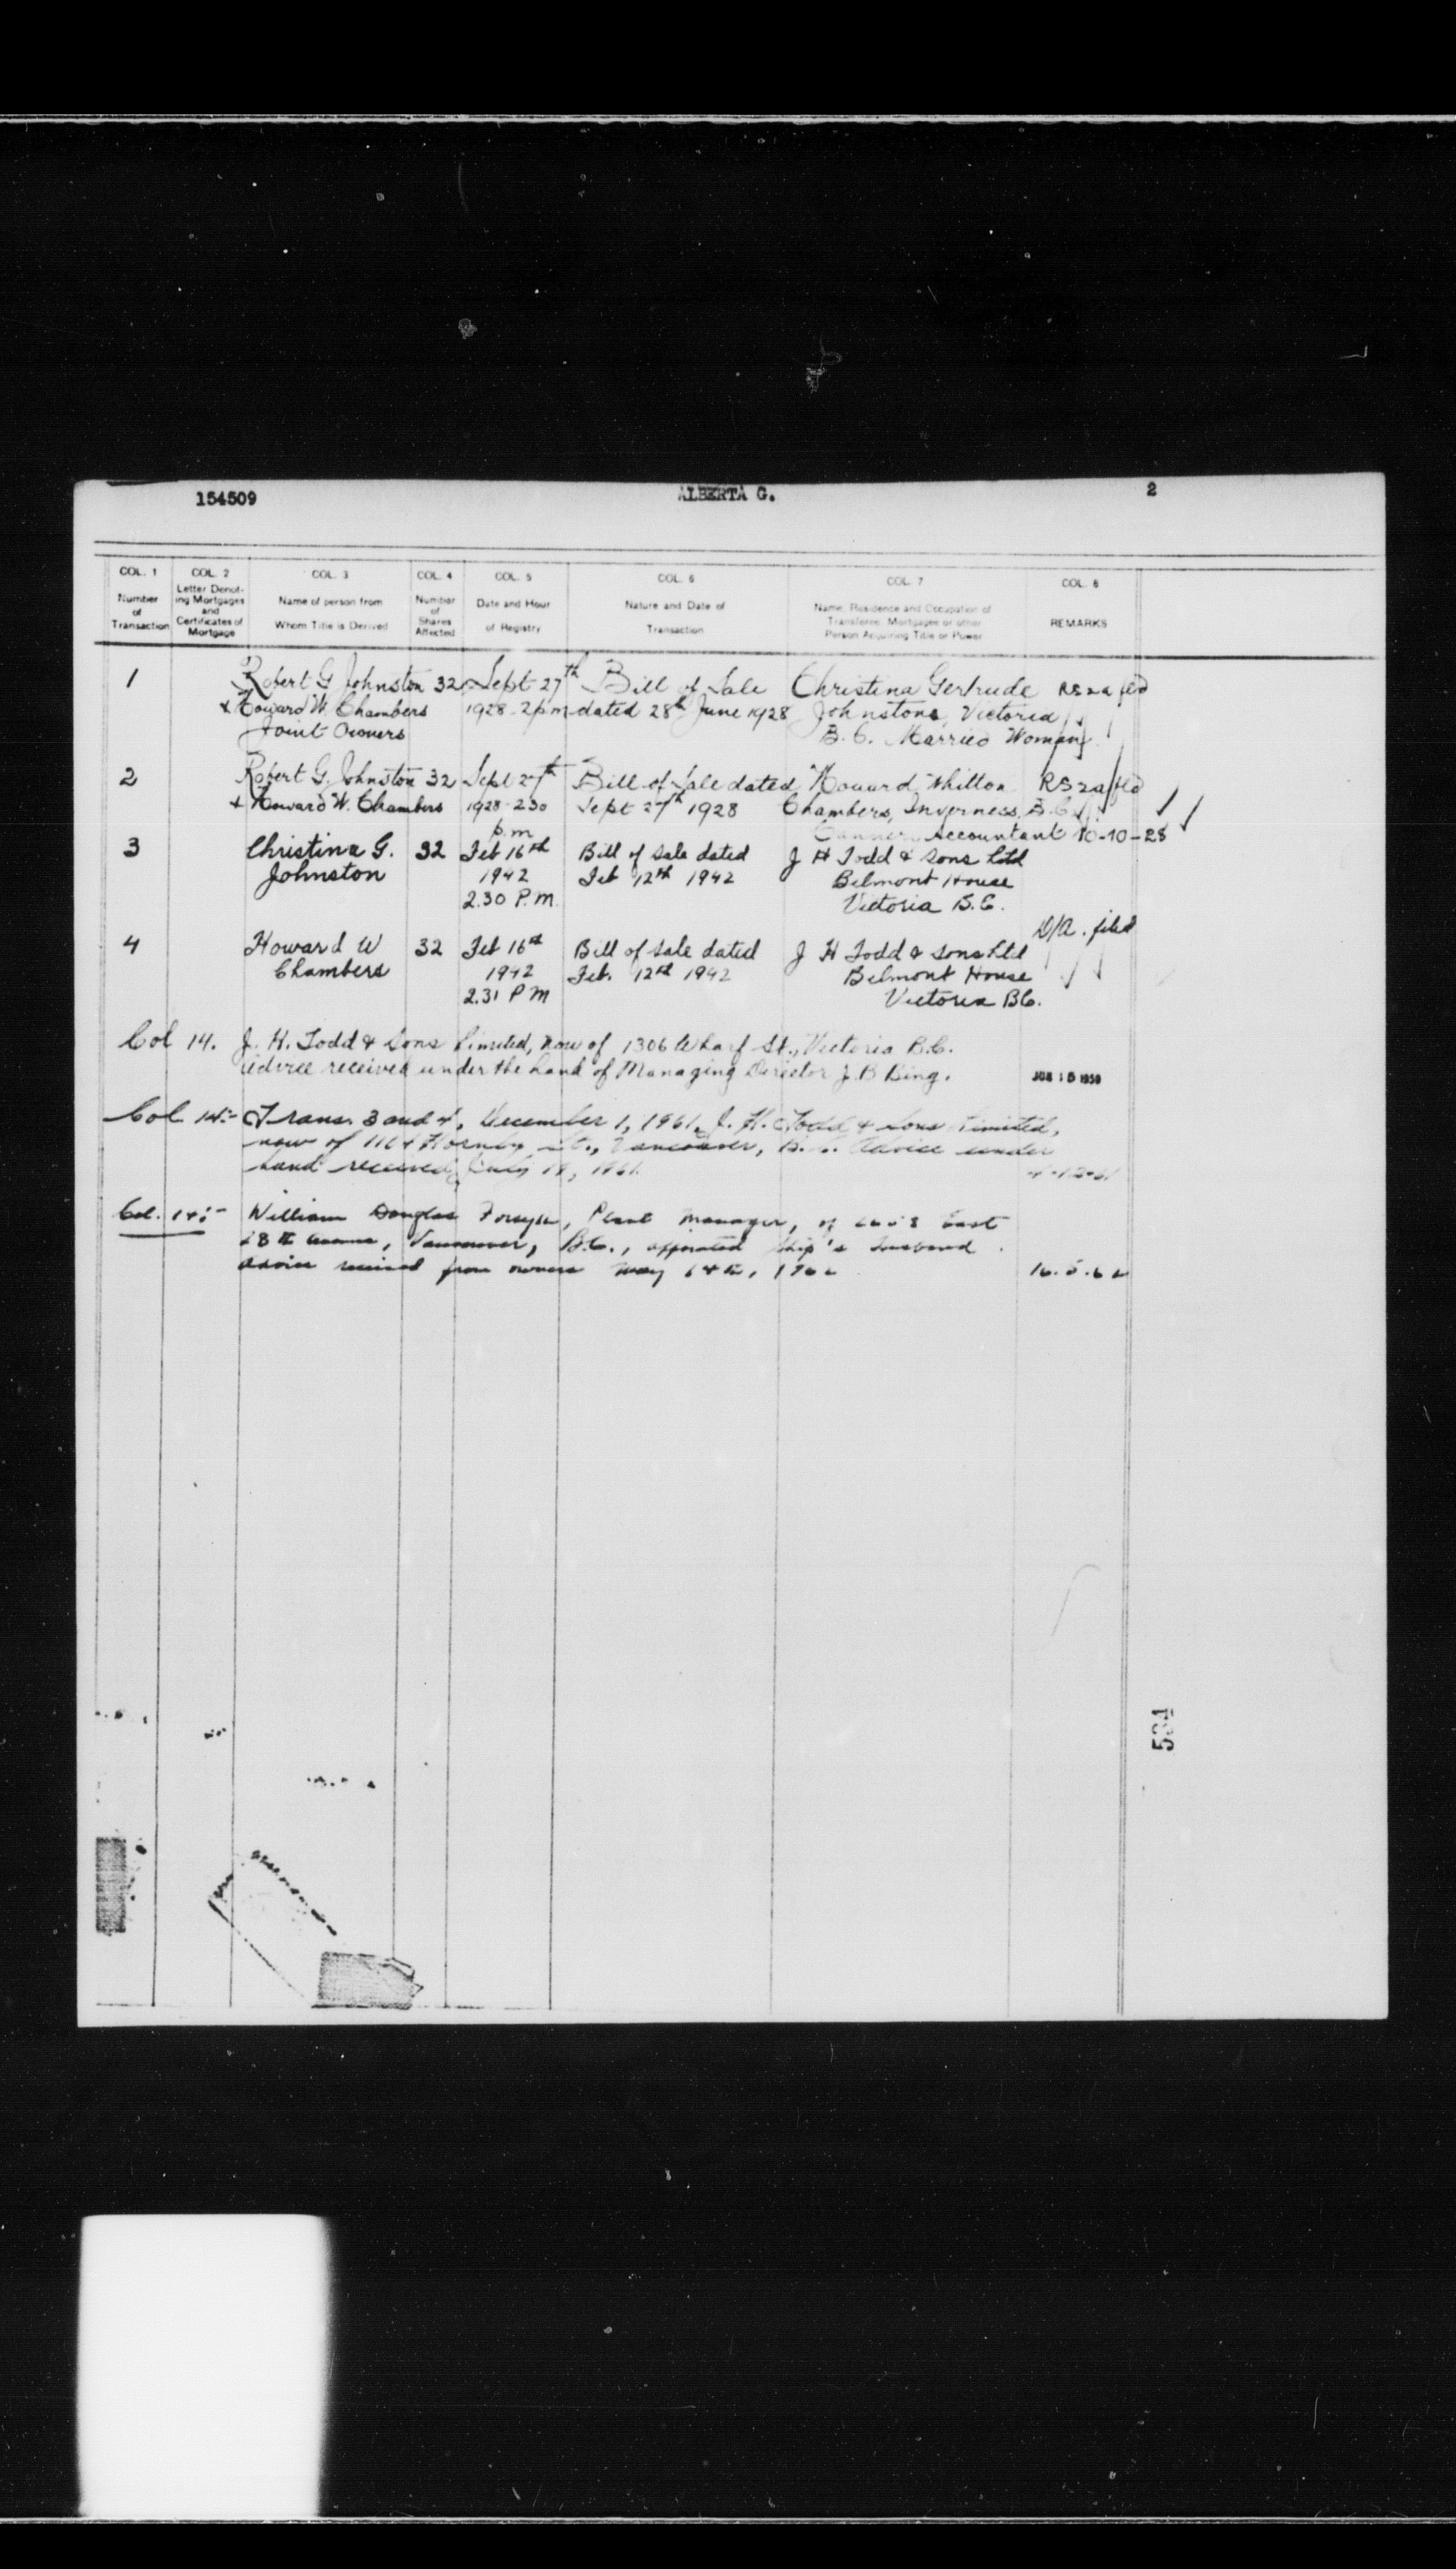 154509 ALBERTA G. 2
COL. 1 COL. 2 COL. 3 COL. 4 COL. 5 COL. 6 COL. 7 COL. 8
Number of Transaction
Letter Denoting Mortgages and Certificates of Mortgage
Name of person from Whom Title is Derived
Number of Shares Affected
Date and Hour of Registry
Nature and Date of Transaction
Name, Residence and Occupation of Transferee, Mortgagee or other Person Acquiring Title or Power
REMARKS
1 Robert G Johnston 32 Sept 27th Bill of Sale Christina Gertrude
& Howard W. Chambers 1928-2pm dated 28th June 1928 Johnstone, Victoria
Joint Owners B.C. Married Woman
2 Robert G. Johnston 32 Sept 27th Bill of Sale dated Howard Whitton
& Howard W. Chambers 1928-230 Sept 27th 1928 Chambers, Inverness, B.C.
p.m Accountant 10-10-28
3 Christina G. 32 Feb 16th Bill of Sale dated J H Todd & Sons Ltd
Johnston 1942 Feb 12th 1942 Belmont House
2.30 P.M. Victoria B.C.
D/A. filed
4 Howard W 32 Feb 16th Bill of Sale dated J H Todd & Sons Ltd
Chambers 1942 Feb. 12th 1942 Belmont House
2.31 PM Victoria BC.
Col 14. J. H. Todd & Sons Limited, now of 1306 Wharf St., Victoria B.C.
advice received under the hand of Managing Director J. B Bing.
Col 14:- Trans. 3 and 4, December 1, 1961, J. H. Todd & Sons Limited,
now of Hornby St., Vancouver, B.C. Advice under
hand received July 1961.
Col. 14:- William Douglas Forsyth, Plant Manager, of East
28th Avenue, Vancouver, B.C., appointed ship's husband.
Advice received from owners May 1962 16.5.62
534